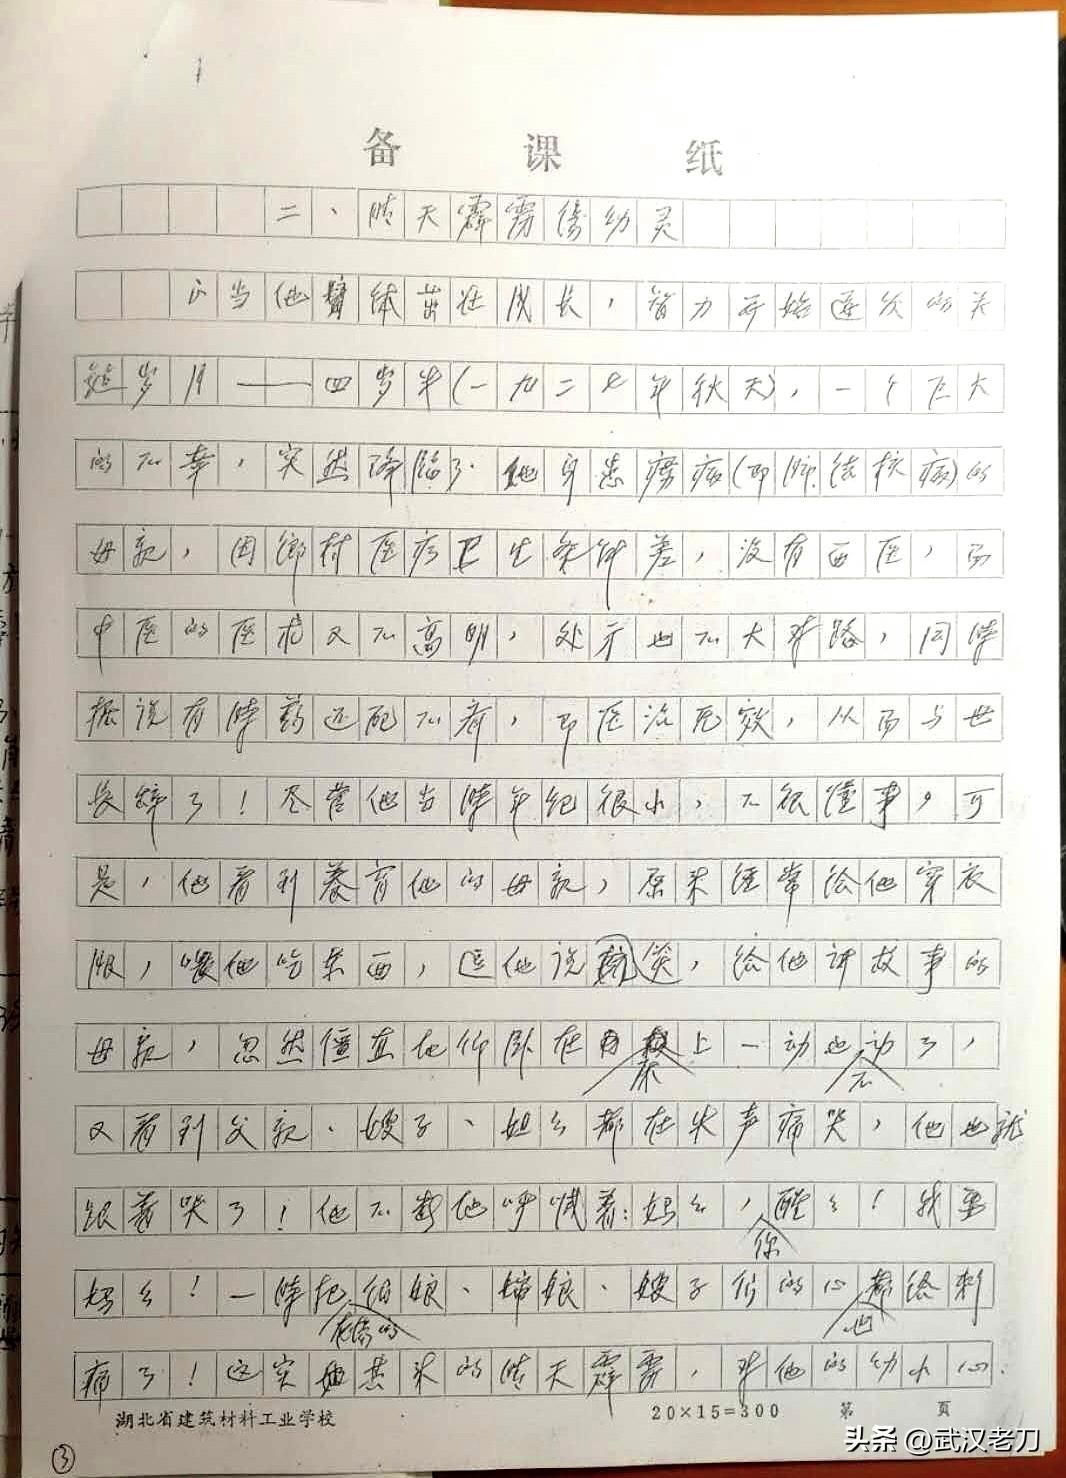 备课纸
二、晴天霹雳伤幼灵
正当他臂体茁壮成长，智力开始逐次的关
键岁月——四岁半(一九二七年秋天)，一个巨大
的不幸，突然降临了。他身患痨病(即肺结核病)的
母亲，因乡村医疗卫生条件差，没有西医，而
中医的医术又不高明，处方也不大对路，同时
据说有时药还配不齐，即医治无效，从而与世
长辞了！尽管他当时年纪很小，不很懂事，可
是，他看到养育他的母亲，原来经常给他穿衣
服，喂他吃东西，逗他说笑，给他讲故事的
母亲，忽然僵直地仰卧在床上一动也不动了，
又看到父亲、嫂子、姐么都在失声痛哭，他也就
跟着哭了！他不断地呼喊着：妈么，你醒么！我要
妈么！一阵把在场的伯娘、婶娘、嫂子们的心也都给刺
痛了！这突如其来的晴天霹雳，对他的幼小心
湖北省建筑材料工业学校
20×15=300
第 页
③
头条 @武汉老刀